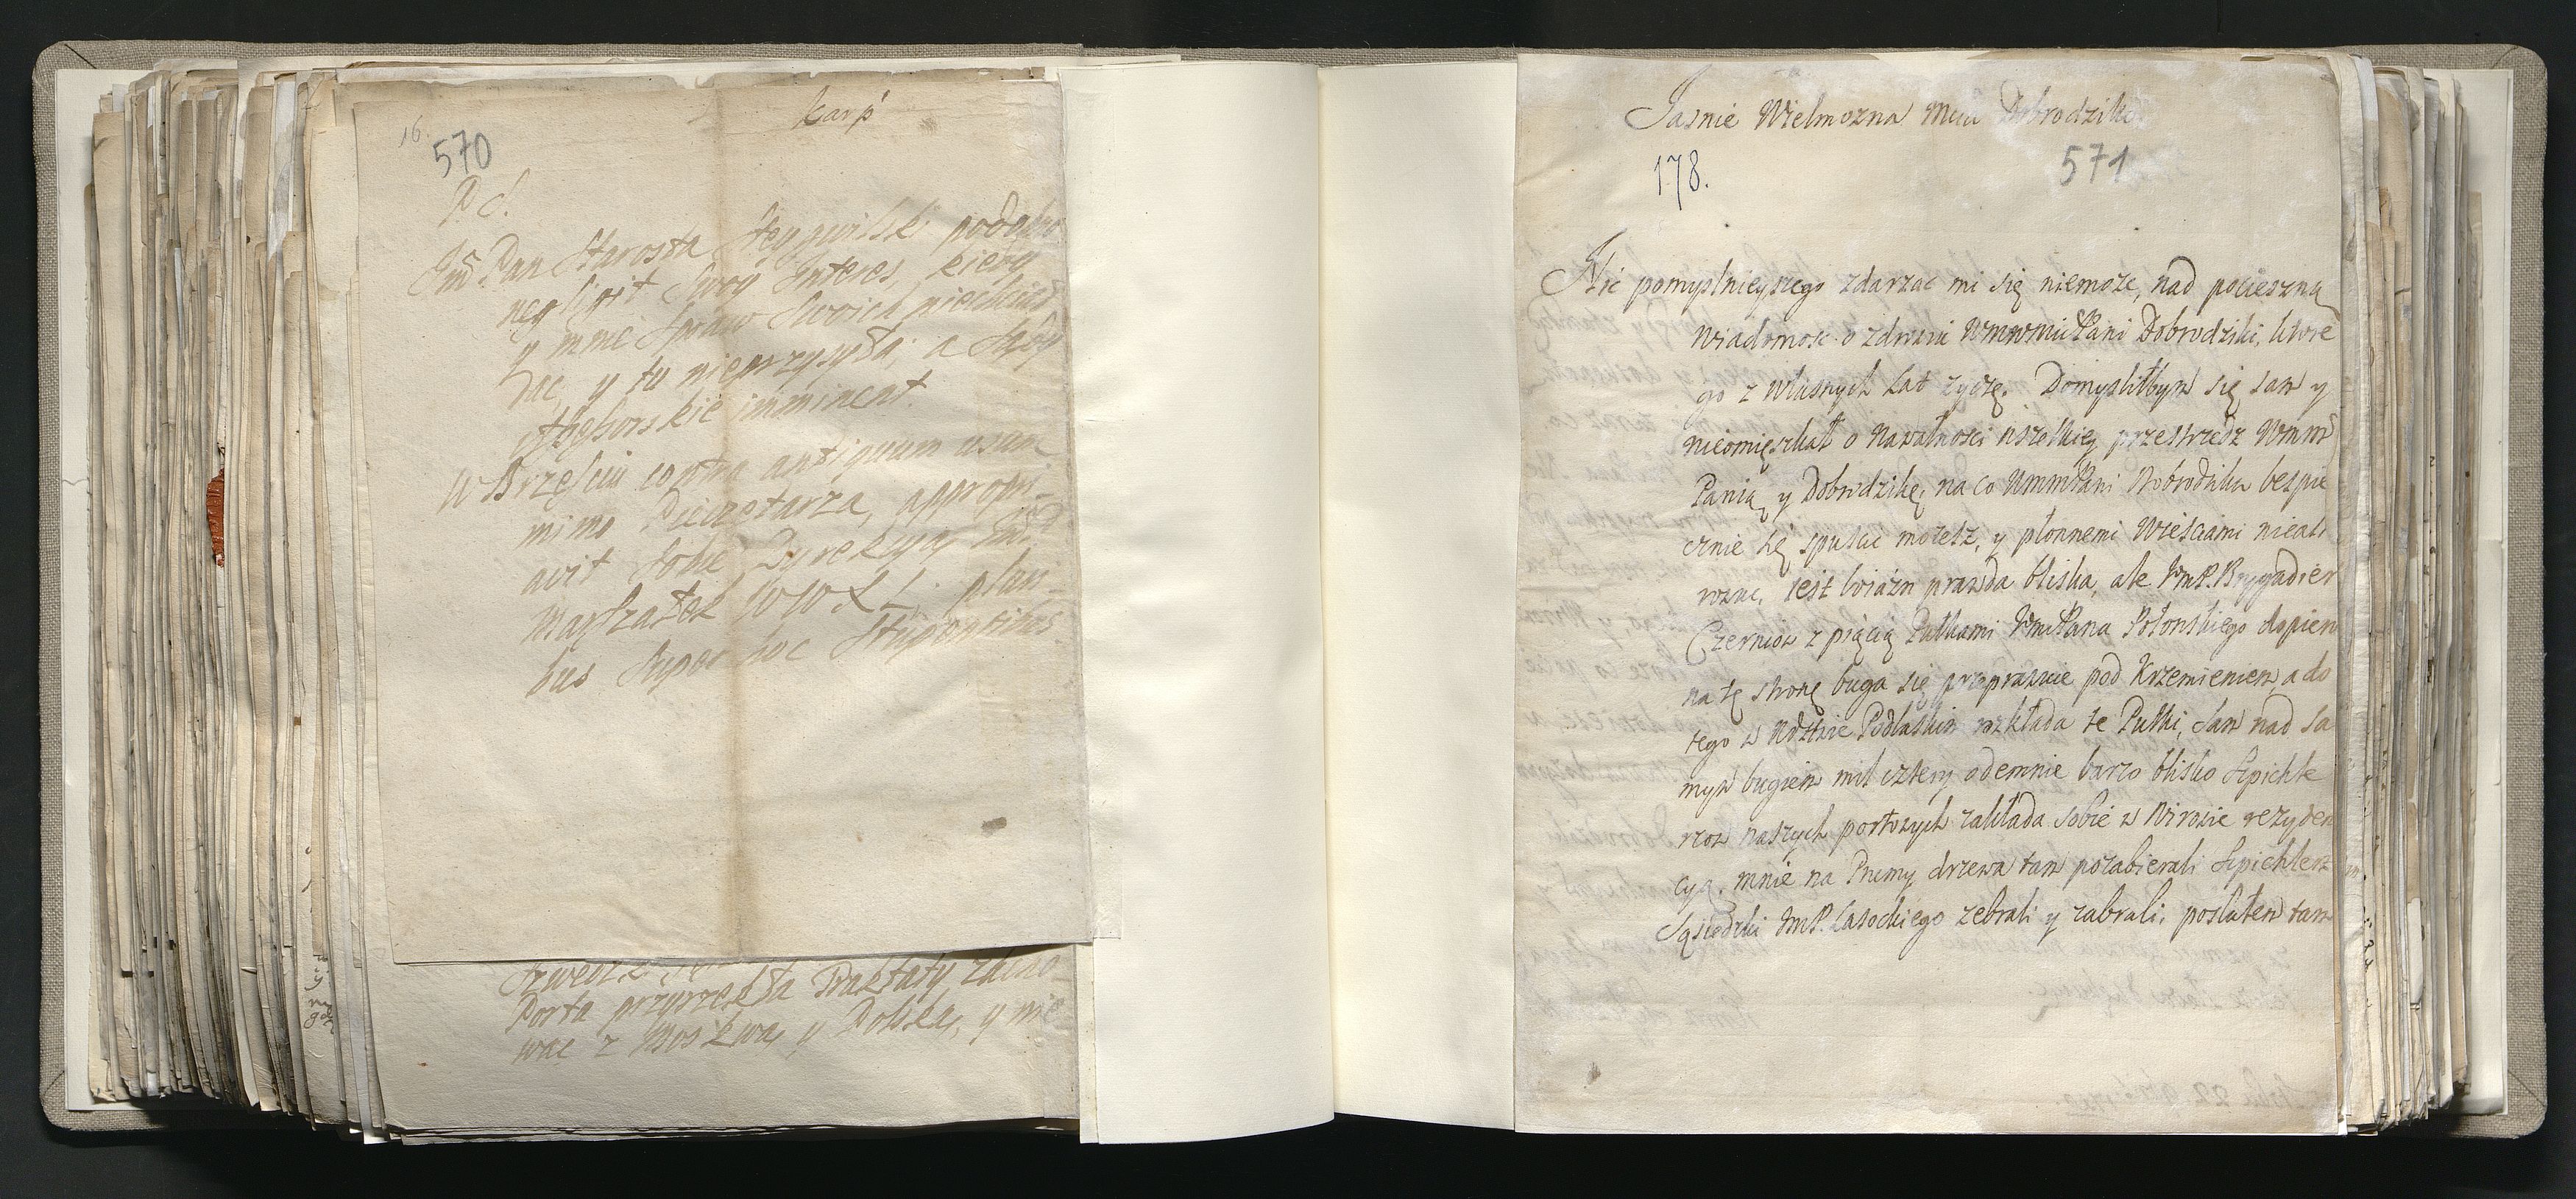 16.
Karp
570
P. S.
Jmć Pan Starosta podobno
negligit Swoy Interes, kiedy
y mnie Spraw Swoich niechciał
dać, y tu nieprzysyła; a Sądy
imminent.
W Brześciu contra antiquum usum
mimo Pieczętarza, appropri-
avit Sobie Dyrekcyą Jmć P.
Marszałek W W X L. plau-
bus Super hoc Stupentibus
Porta przyrzekła Traktaty zacho
wać z Moskwą, y Polską, y nie
Jasnie Wielmozna Mcia Dobrodziko
178.
571
Nic pomyslnieyszego zdarzac mi się niemoze, nad pocieszną
wiadomosc o zdrowiu WmmPani Dobrodziki, ktore
go z własnych Lat zyczę. Domysliłbym się sam y
nieomięszkał o nawalnosci wszelkiey przestrzedz Wmm
Panią y Dobrodzikę, na co WmmPani Dobrodzika bespie
cznie się spuscic mozesz, y płonnemi wiesciami nieal
rzac. Jest boiazn prawda bliska, ale JmP. Brygadier
Czernicow z piącią Pułkami JmPana Potonskiego dopiero
na tę stronę buga się przeprawuie pod Krzemieniem, a do
tego w Wdztwie Podlaskim rozkłada te Pułki, sam nad sa
mym bugiem mil cztery odemnie barzo blisko Szpichle
rzow naszych portowych zakłada sobie w Nirowie rezyden
cyą. mnie na Prumy drzewa tam pozabierali Szpichlerz
Sąsiedzki JmP. Lasockiego zebrali y zabrali; posłałem tam